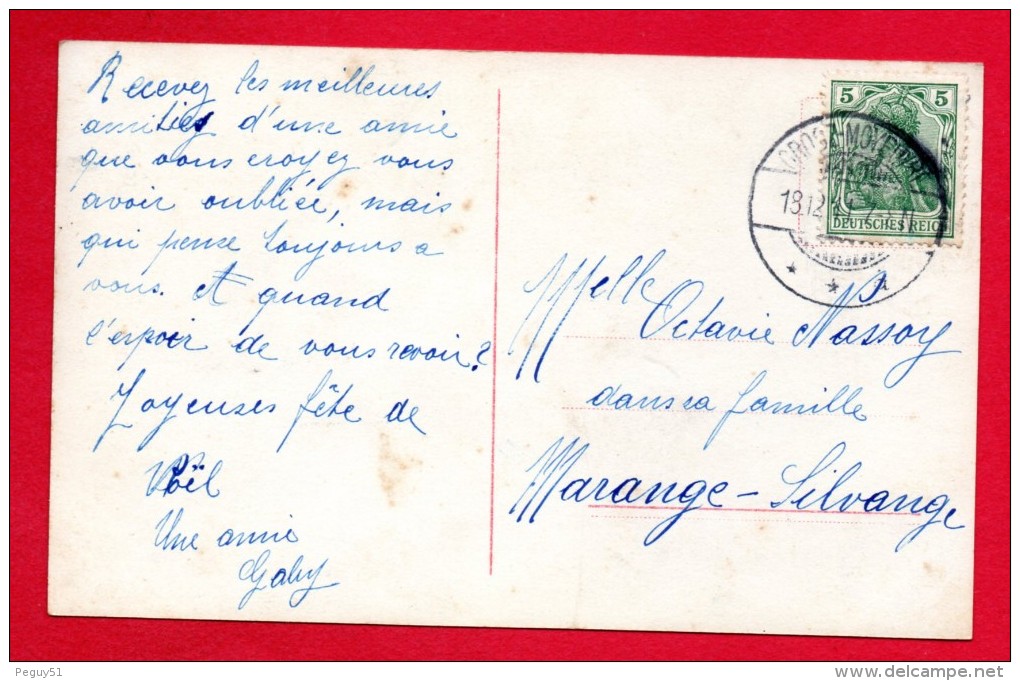 Recevez les meilleures
amitiés d'une amie
que vous croyez vous
avoir oubliée, mais
qui pense toujours a
vous. Et quand
l'espoir de vous revoir?
Joyeuses fête de
Noël
Une amie
Gaby
5 5
DEUTSCHES REICH
GROSS-MOYEUVRE
18.12.
Melle
Octavie Nassoy
dans sa famille
Marange-Silvange
Peguy51
www.delcampe.net